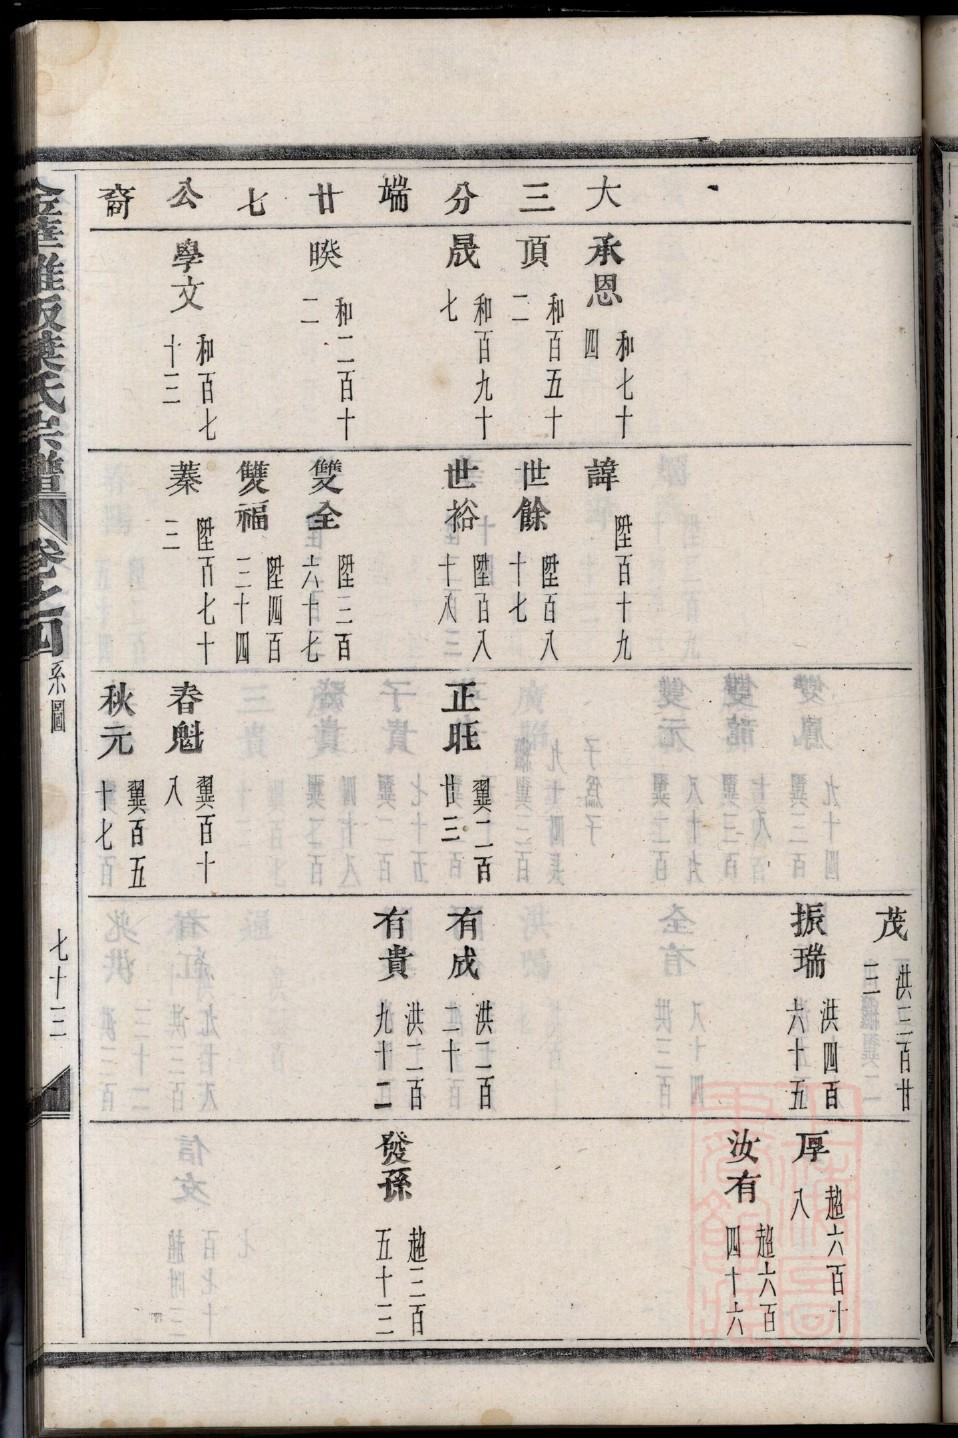 大三分端廿七公裔
承恩 和七十四
頂 和百五十二
晟 和百九十七
暌 和二百十二
學文 和百七十三
諱 陞百十九
世餘 陞百八十七
世裕 陞百八十八
雙全 陞三百六十七
雙福 陞四百三十四
蓁 陞百七十三
正旺 翼二百廿三
春魁 翼百十八
秋元 翼百五十七
茂 洪三百廿三
振瑞 洪四百六十五
有成 洪二百二十
有貴 洪二百九十二
厚 趙六百十八
汝有 趙六百四十六
發孫 趙三百五十三
氏宗譜
卷之四
系圖
七十三